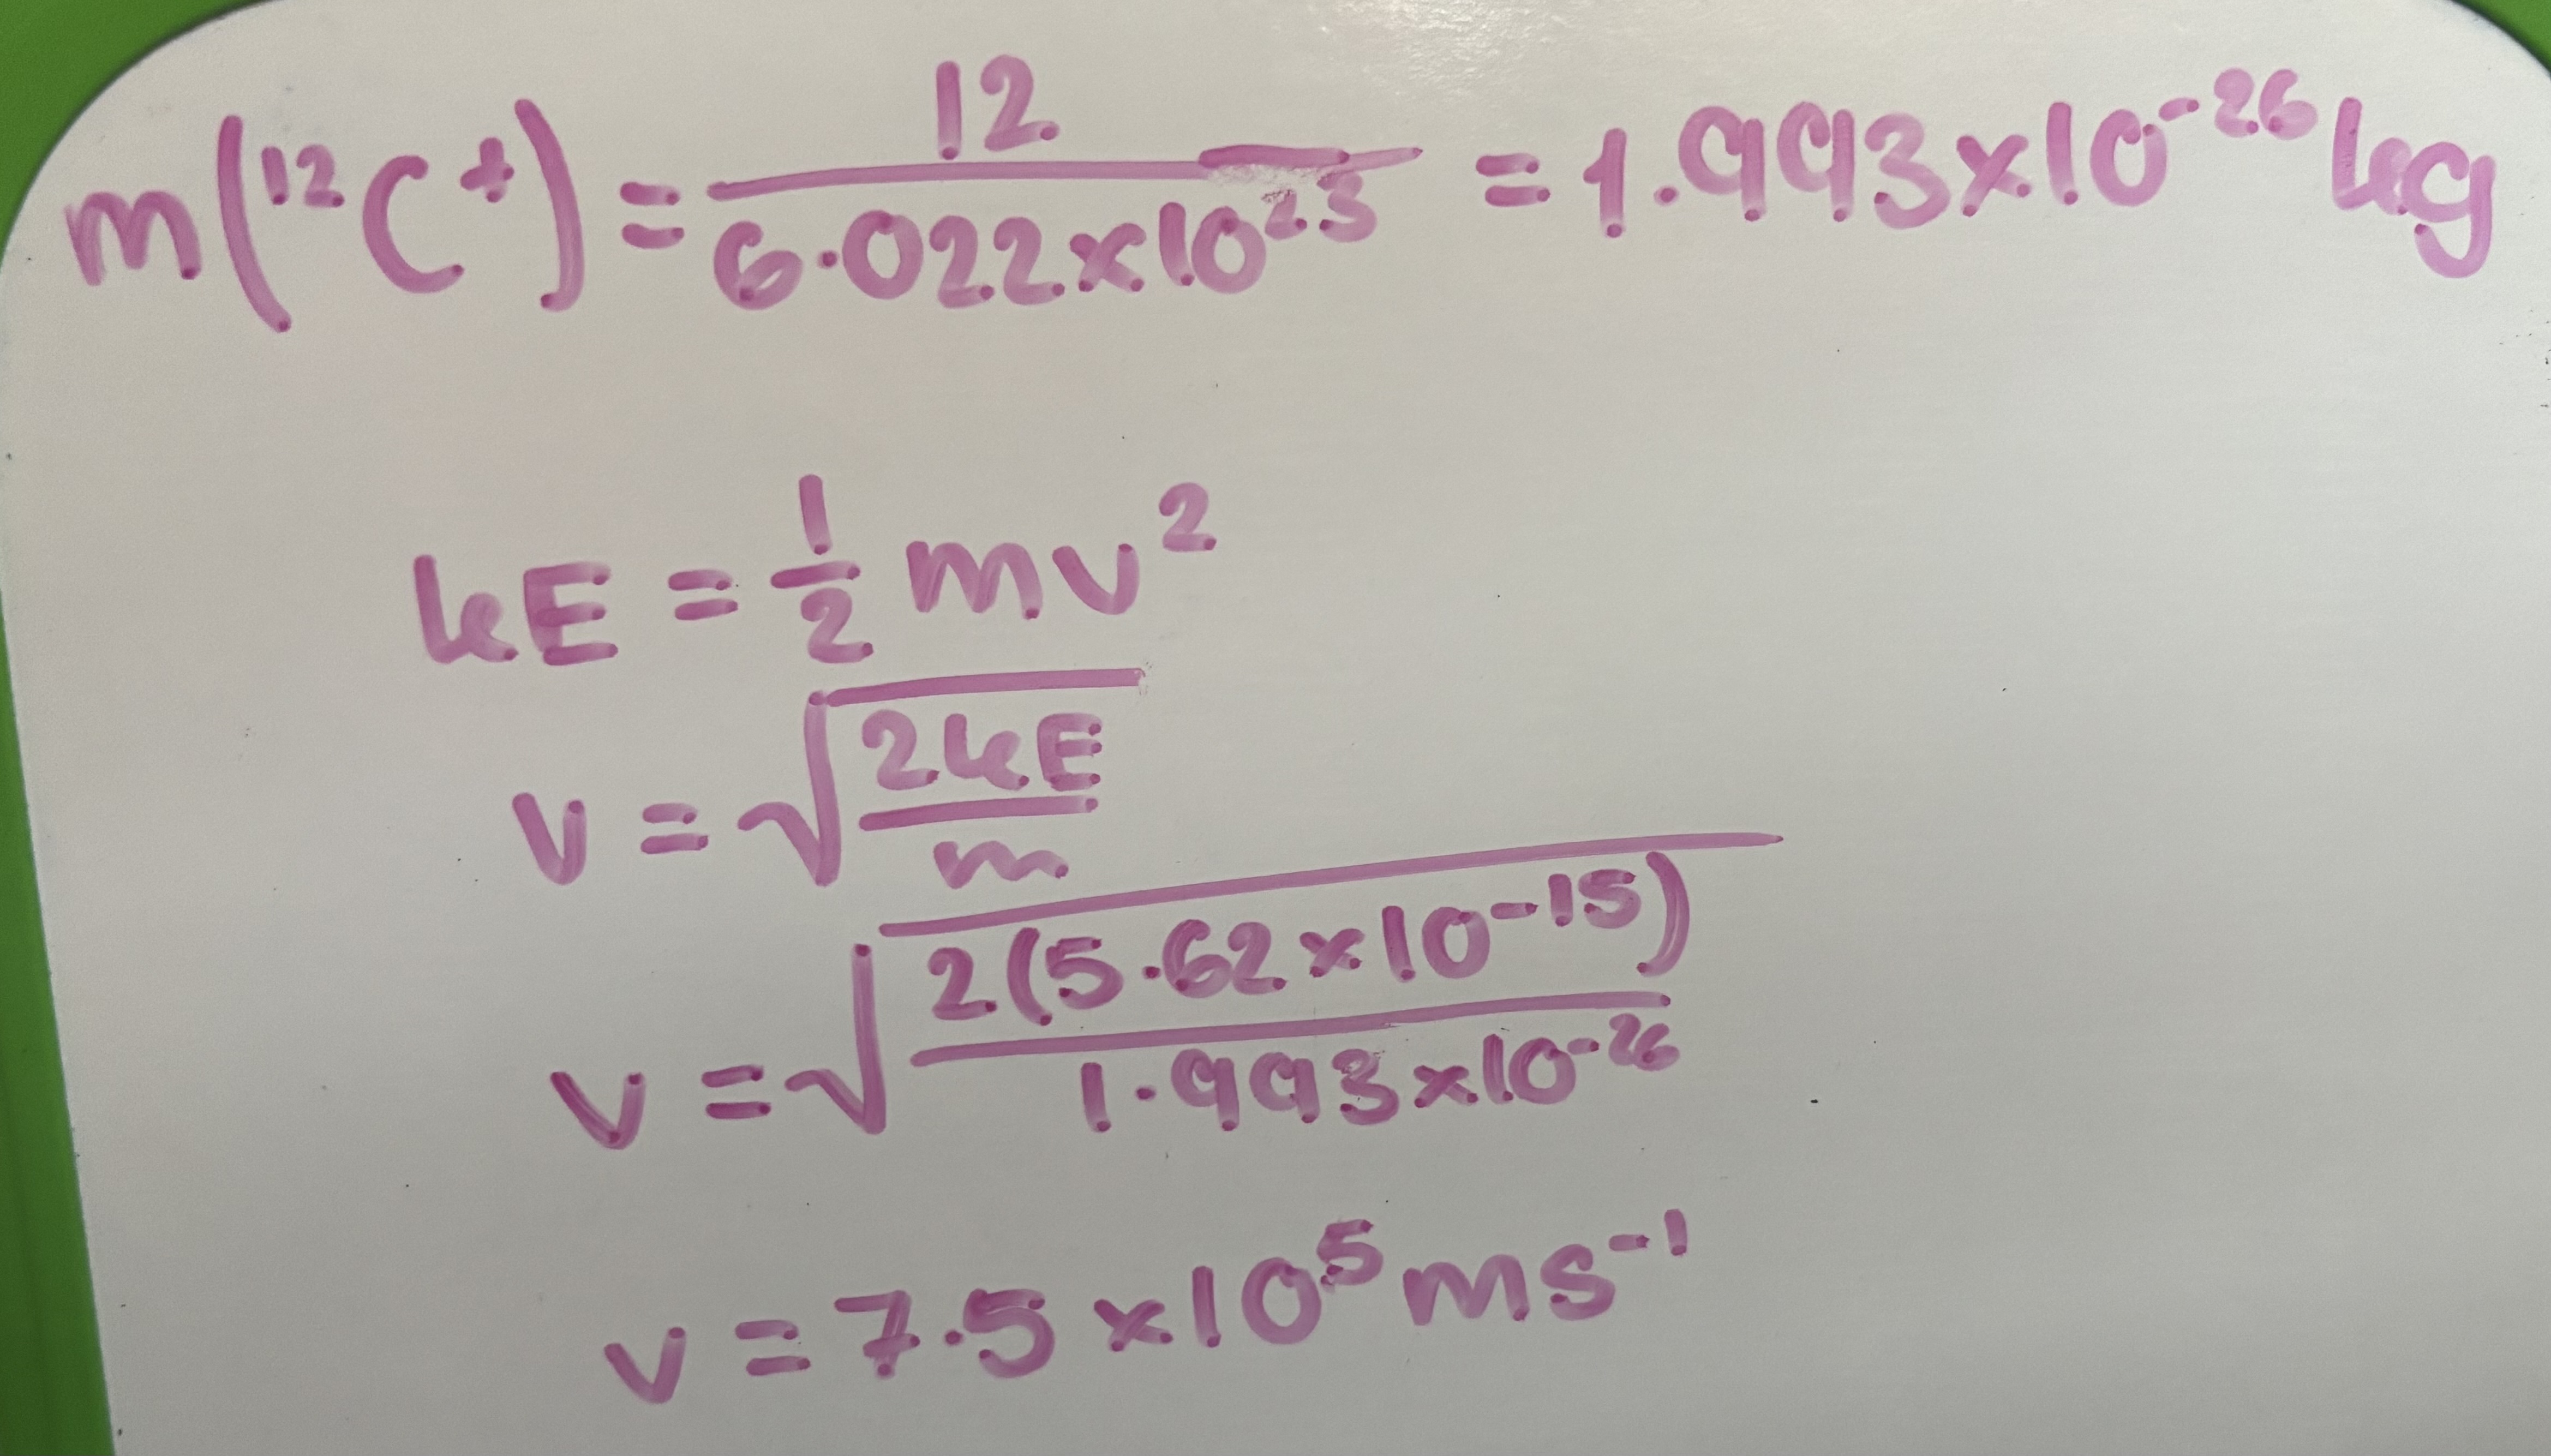 m(¹²C⁺) = 12 / 6.022×10²³ = 1.993×10⁻²⁶ kg
kE = 1/2 mv²
v = √(2kE / m)
v = √(2(5.62×10⁻¹⁵) / 1.993×10⁻²⁶)
v = 7.5×10⁵ ms⁻¹